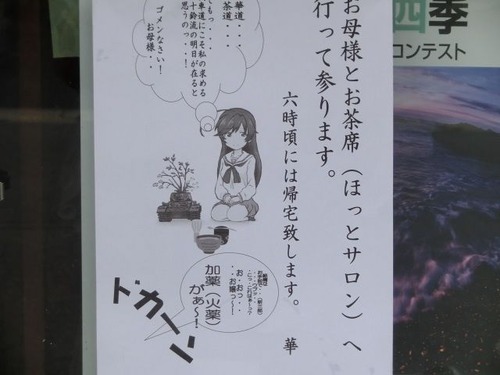 お母様とお茶席(ほっとサロン)へ
行って参ります。
六時頃には帰宅致します。
華
華道・・・
茶道・・・
でもっ・・・
戦車道にこそ私の求める
五十鈴流の明日が在ると
思うのっ・・!
ゴメンなさい!
お母様・・・
お・おっ・・
・・お嬢っ〜!
加薬(火薬)
がぁ〜!
ドカーン
四季
コンテスト